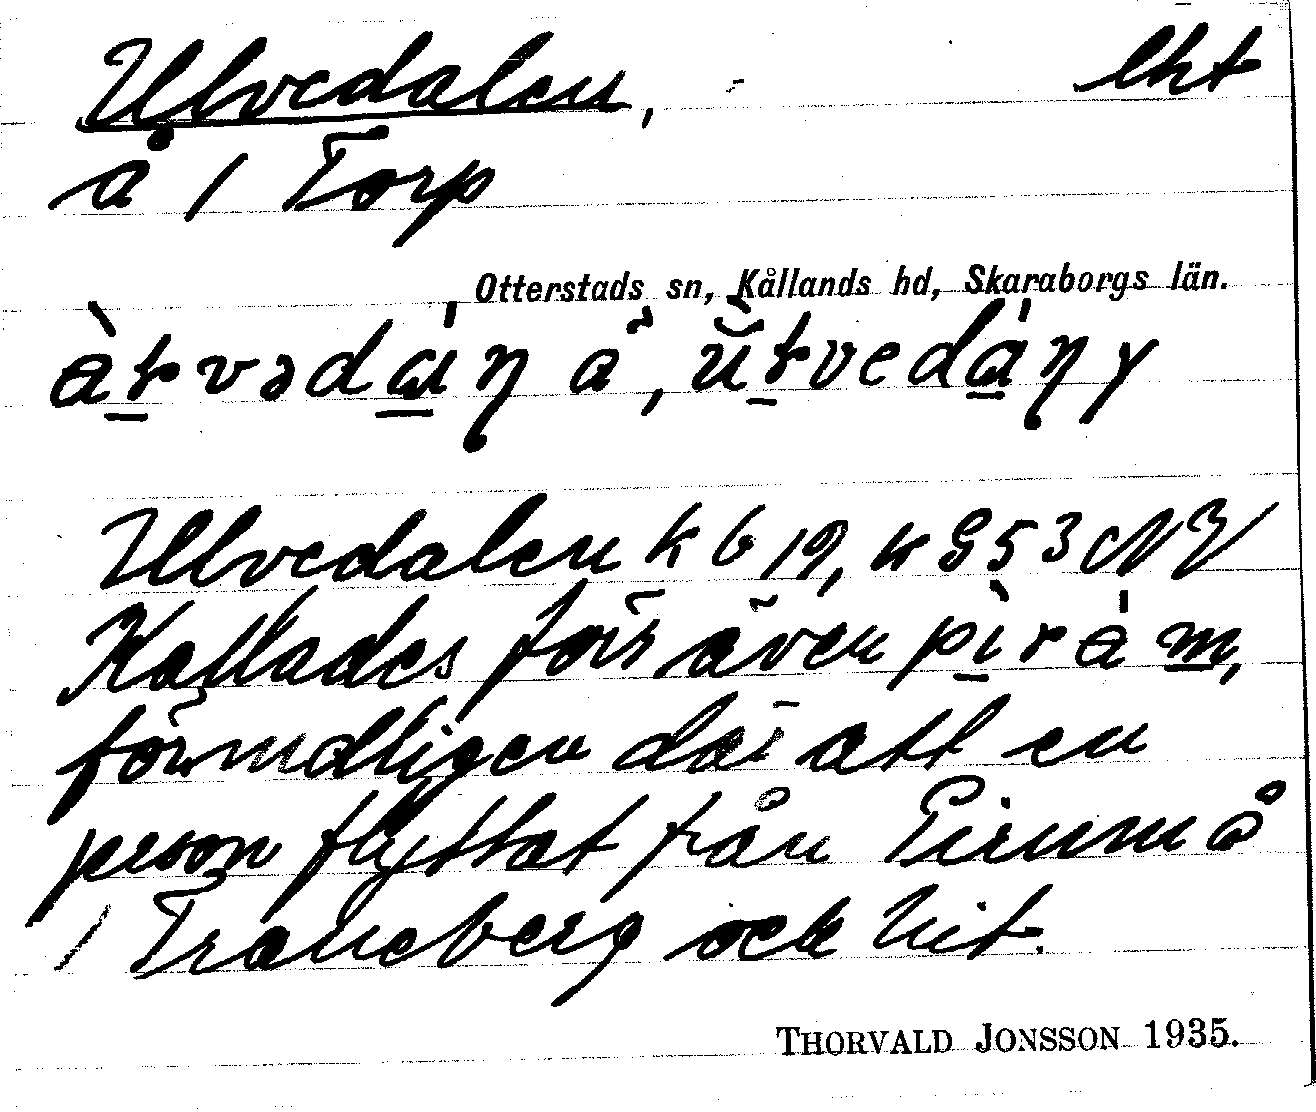 Ulvedalen, lht
å / Torp
Otterstads sn, Kållands hd, Skaraborgs län.
Ulvedalen k b 19, k G53 NV
Kallades förr även
förmodligen där att en
person flyttat från Pirum å
/ Traneberg och hit.
THORVALD JONSSON 1935.